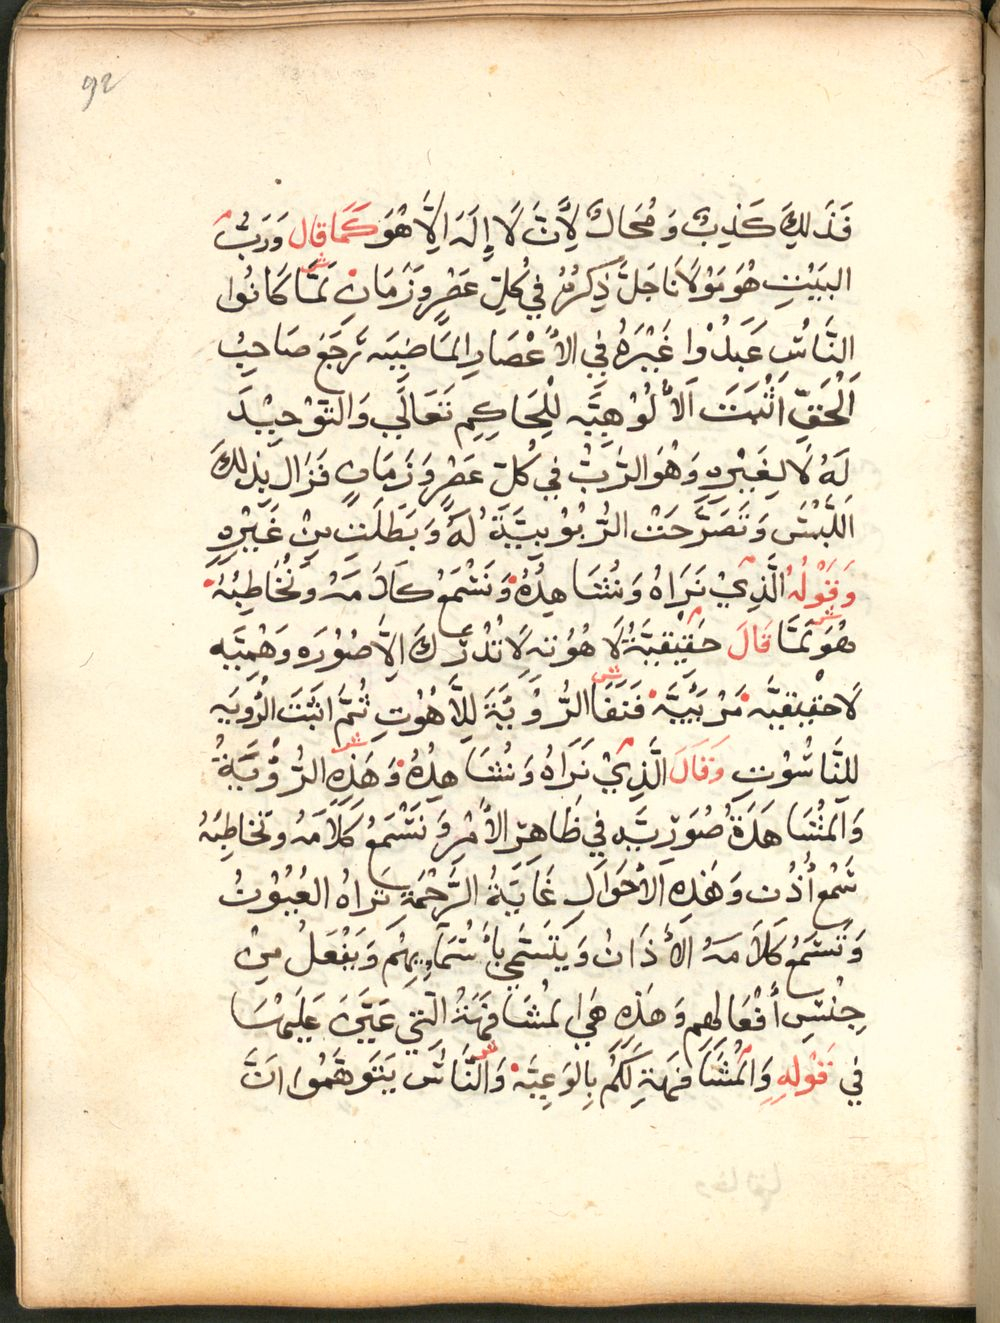 92
فَذَلِكَ كَذِبٌ وَمُحَالٌ لِأَنَّ لَا إِلَهَ إِلَّا هُوَ كَمَا قَال وَرَبُّ
البَيْتِ هُوَ مَوْلَانَا جَلَّ ذِكرُهُ فِي كُلِّ عَصْرٍ وَزَمَانٍ لَمَّا كَانُوا
النَّاسُ عَبَدُوْا غَيْرَهُ فِي الأَعْصَارِ المَاضِيَه رَجَعَ صَاحِبُ
اَلْحَقِّ اَثْبَتَ اَلأُلُوْهِيَّه لِلْحَاكِمِ تَعَالَى وَالتَوْحِيْدَ
لَهُ لَا لِغَيْرِهِ وَهُوَ الرَّبُّ فِي كُلِّ عَصْرٍ وَزَمَانٍ فَزَال بِذلِكَ
اللَّبْسُ وَتَصَرَّحَتْ الرُّبُوْبِيَّةُ لَهُ وَبَطَلَتْ مِنْ غَيْرِهِ
وَقَوْلُهُ الَّذِيْ نَرَاهُ وَنُشَاهِدُهُ وَنَسْمَعُ كَلَامَهُ وَنُخَاطِبُهُ
شر
هُوَ لَمَّا قَالَ حَقِيْقِيَّةُ لَاهُوْتِهِ لَا تُدْرَكَ اِلَّا صُوْرَه وَهْمِيَّه
لَا حَقِيْقِيَّه مَرْئِيَّه فَنَفَا الرُّوْيَةَ لِلَّاهُوْتِ ثُمَّ اثبَتَ الرُّويَه
شر
لِلنَّاسُوْتِ وَقَالَ الَّذِيْ نَرَاهُ وَنُشَاهِدُهُ وَهَذِهِ الرُّوْيَةُ
شر
وَالمُشَاهَدَةُ صُوَرِيَّه فِي ظَاهِرِ الأَمْرِ وَنَسْمَعُ كَلَامَهُ وَنُخَاطِبُهُ
سَمْعُ أُذُن وَهَذِهِ الأَحْوَالِ غَايَةُ الرَّحْمَةِ تَرَاهُ العُيُوْنُ
وَتَسْمَعُ كَلَامَهُ الأَذَانُ وَيَتَسَمَّى بِأَسْمَآيِهِم وَيَفْعَلُ مِنْ
جِنْسِ أَفْعَالِهِم وَهَذِهِ هِيَ المُشَافَهَةُ الَّتِي عَيَّنَ عَلَيهَا
فِي قَوْلِهِ وَالمُشَافَهَةِ لَكُم بِالوَعِيَّه وَالنَّاسُ يَتَوَهَّمُوا اَنَّ
شر